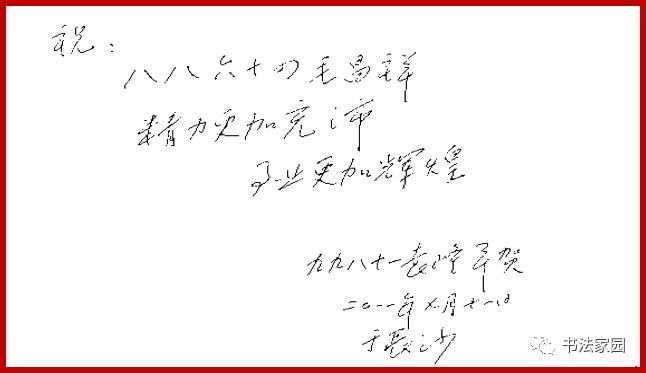 祝：
八八六十四毛昌祥
精力更加充沛
事业更加辉煌
九九八十一袁隆平贺
二〇一一年七月十一日
于長沙
书法家园